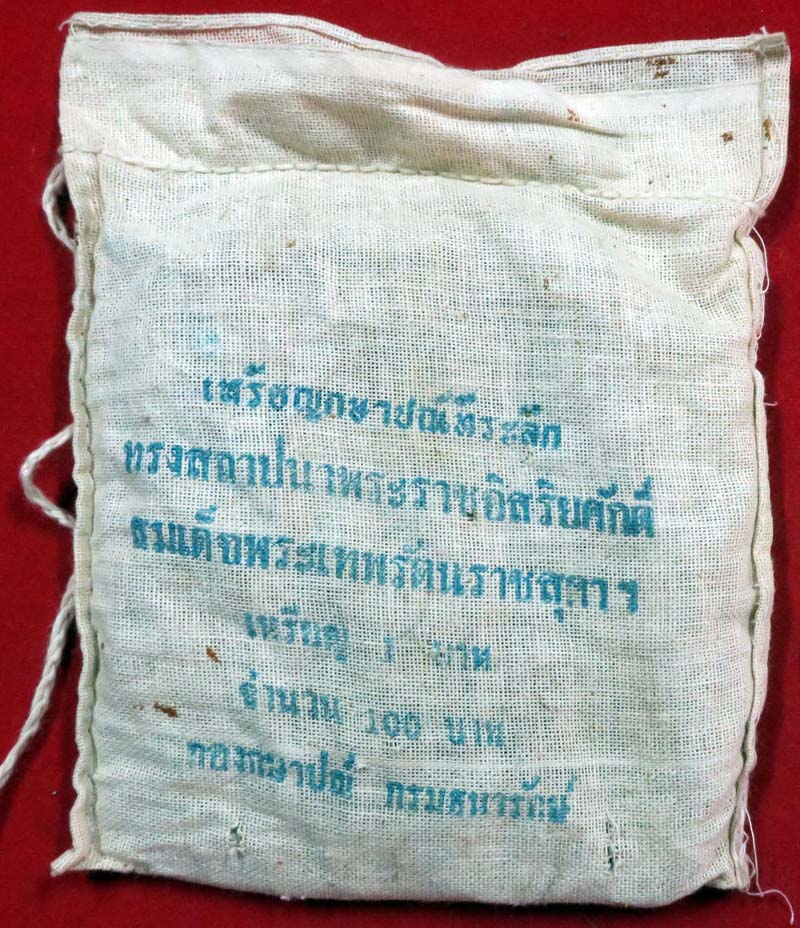 เหรียญกษาปณ์ที่ระลึก
ทรงสถาปนาพระราชอิสริยศักดิ์
สมเด็จพระเทพรัตนราชสุดาฯ
เหรียญ 1 บาท
จำนวน 100 บาท
กองกษาปณ์ กรมธนารักษ์